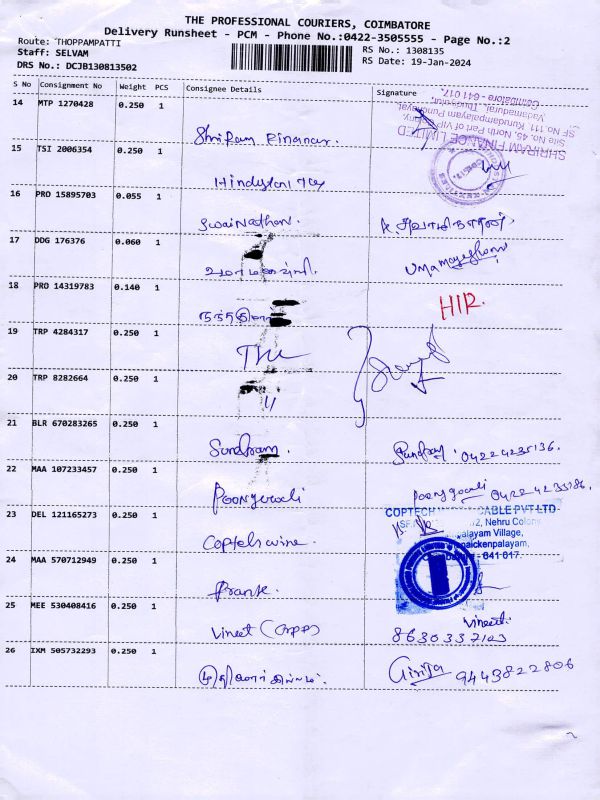 THE PROFESSIONAL COURIERS, COIMBATORE
Delivery Runsheet - PCM - Phone No.:0422-3505555 - Page No.:2
Route: THOPPAMPATTI
Staff: SELVAM
DRS No.: DCJB130813502
RS No.: 1308135
RS Date: 19-Jan-2024
S No Consignment No Weight PCS Consignee Details Signature
14 MTP 1270428 0.250 1
Shriram Finance.
SHRIRAM FINANCE LIMITED
Site No. 45, North Part of VIP
SF No.111, Kurudampalayam Panchayat,
Vadamadurai, Thudiyalur,
Coimbatore - 641 017.
15 TSI 2006354 0.250 1
Hindustan Tex
16 PRO 15895703 0.055 1
Swaminathan. சுவாமிநாதன்
17 DDG 176376 0.060 1
உமாமகேஸ்வரி. Umamageshwari
18 PRO 14319783 0.140 1
HIR.
19 TRP 4284317 0.250 1
20 TRP 8282664 0.250 1
21 BLR 670283265 0.250 1
Sundram. Sundram. 04224235136.
22 MAA 107233457 0.250 1
Poonguzali Poongoali
23 DEL 121165273 0.250 1
Coptech wire.
COPTECH CABLE PVT LTD
2, Nehru Colony
alayam Village,
naickenpalayam,
- 641 017.
24 MAA 570712949 0.250 1
25 MEE 530408416 0.250 1
Vineet Vineet.
8630337103
26 IXM 505732293 0.250 1
முதியோர் இல்லம். Girija 9443822806
2